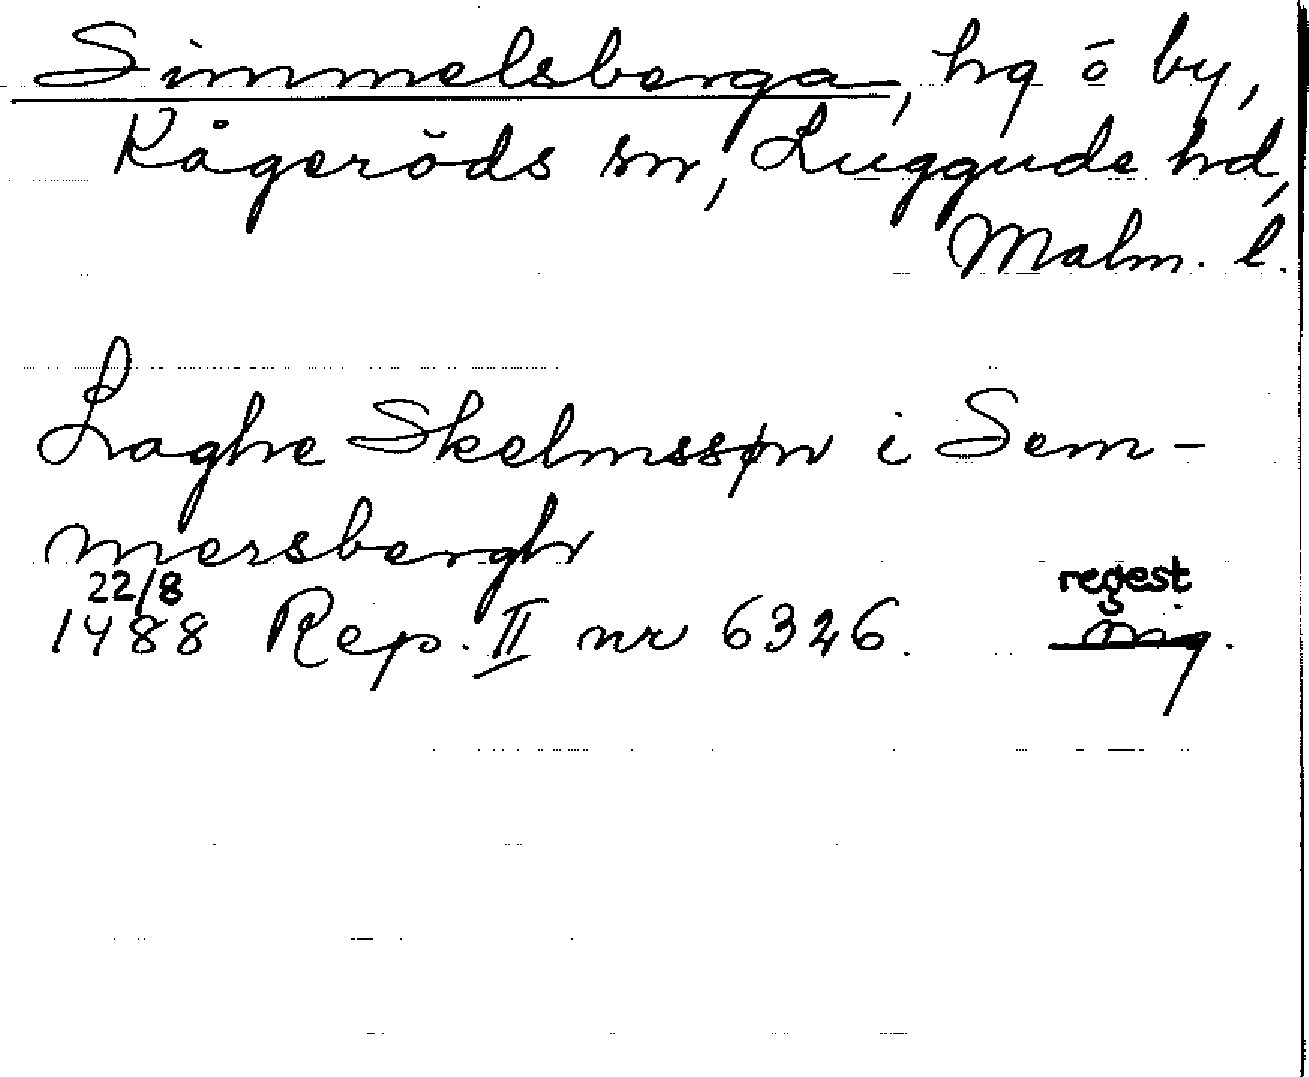 Simmelsberga, hg o by,
Kågeröds sn, Luggude hd,
Malm. l.
Laghe Skelmssøn i Sem-
mersbergh
22/8 regest
1488 Rep. II nr 6326.